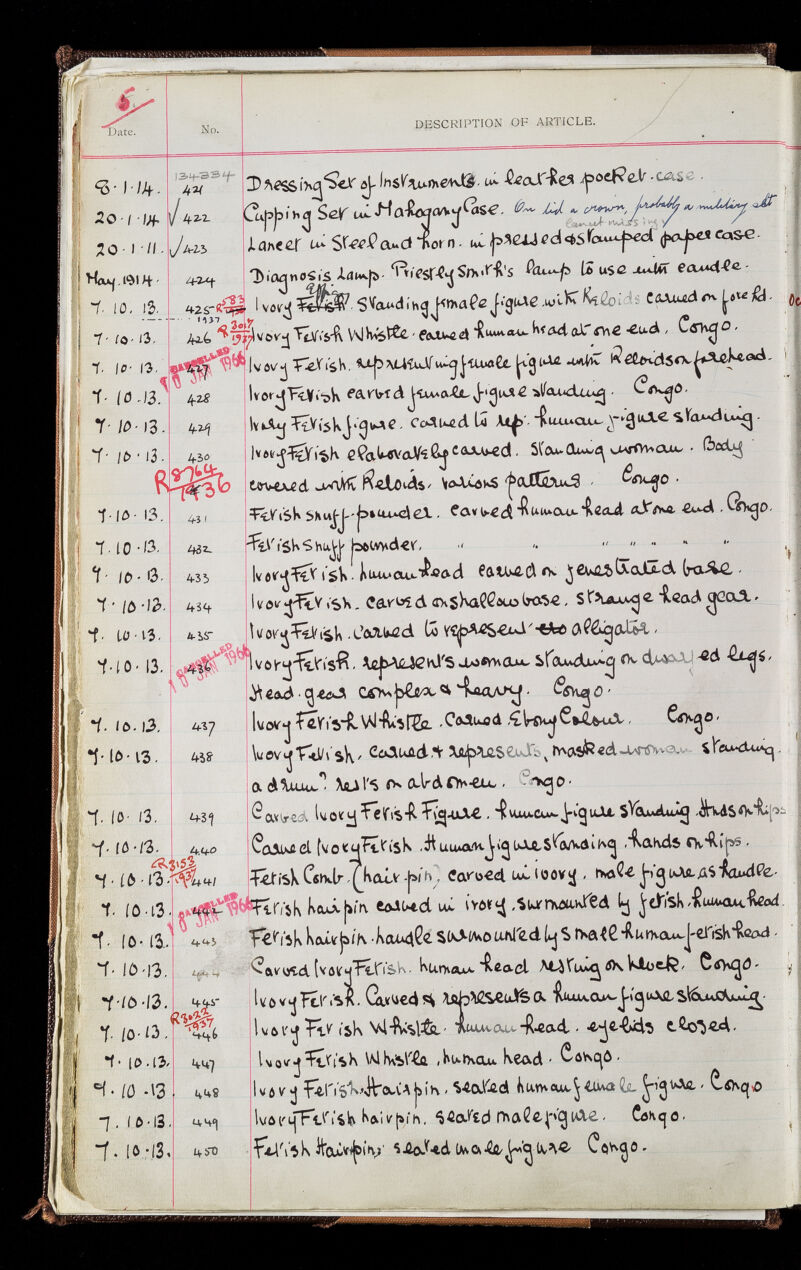 5.
Date. No. DESCRIPTION OF ARTICLE.
134334
8.1.14. 421 Dressing Set of Instruments. in leather pocket-case.
20.1.14 √ 422 Cupping Set in Mahogany Case. On lid a crown, probably a military set
lancet missing
20.1.11. √ 423 Lancet in Steel and horn. in pressed & stamped paper case.
May. 1914. 424 Diagnosis Lamp. Priestly Smith's lamp to use with candle.
7.10.13. 425 R583/1937 Ivory Fetish. Standing female figure with Keloids carved on forehd.
7.10.13. 426 R3017/1937 Ivory Fetish Whistle. carved human head at one end, Congo.
7.10.13. 427 CANCELLED 10 JAN 1966 Ivory Fetish. representing female figure with Keloids on forehead.
7.10.13. 428 Ivory Fetish carved female figure standing. Congo.
7.10.13. 429 Ivory Fetish figure. carved to rep. human figure standing.
7.10.13. 430 Ivory Fetish elaborately carved. Standing woman. Body
R8764/1936 covered with Keloids, various patterns. Congo.
7.10.13. 431 Fetish snuff-pounder. carved human head at one end. Congo.
7.10.13. 432 Fetish Snuff pounder, " " " " " "
7.10.13. 433 Ivory Fetish. human head carved on fenestrated base.
7.10.13. 434 Ivory Fetish. carved on shallow base. strange head gear.
7.10.13. 435 Ivory Fetish. Carved to represent alligator.
7.10.13. 436 CANCELLED 10 JAN 1966 Ivory Fetish. represents woman standing on dwarfed legs.
Head-gear complex & heavy. Congo.
7.10.13. 437 Ivory Fetish Whistle. Carved Ebony Colour. Congo.
7.10.13. 438 Ivory Fetish, carved & represents, masked woman standing.
a drum? rests on abdomen. Congo.
7.10.13. 439 Carved Ivory Fetish Figure. human figure standing. Hnds on hips
7.10.13. 440 Carved Ivory Fetish. Human figure standing. hands on hips.
7.10.13. R3153/1937 441 Fetish Comb. (hair-pin) carved in ivory. male figure as handle.
7.10.13. 442 CANCELLED 10 JAN 1966 Fetish hair pin carved in ivory. surmounted by fetish. human head.
7.10.13. 443 Fetish hairpin. handle surmounted by small human fetish head.
7.10.13. 444 Carved Ivory Fetish. human head resting on block. Congo.
7.10.13. 445 Ivory Fetish. Carved & represents a human figure standing.
7.10.13. R3022/1937 446 Ivory Fetish Whistle. human head. eyelids closed.
7.10.13. 447 Ivory Fetish Whistle, human head. Congo.
7.10.13. 448 Ivory Fetish. Hairpin. seated human female figure. Congo
7.10.13. 449 Ivory Fetish hairpin. seated male figure. Congo.
7.10.13. 450 Fetish Hairpin, seated male figure Congo.